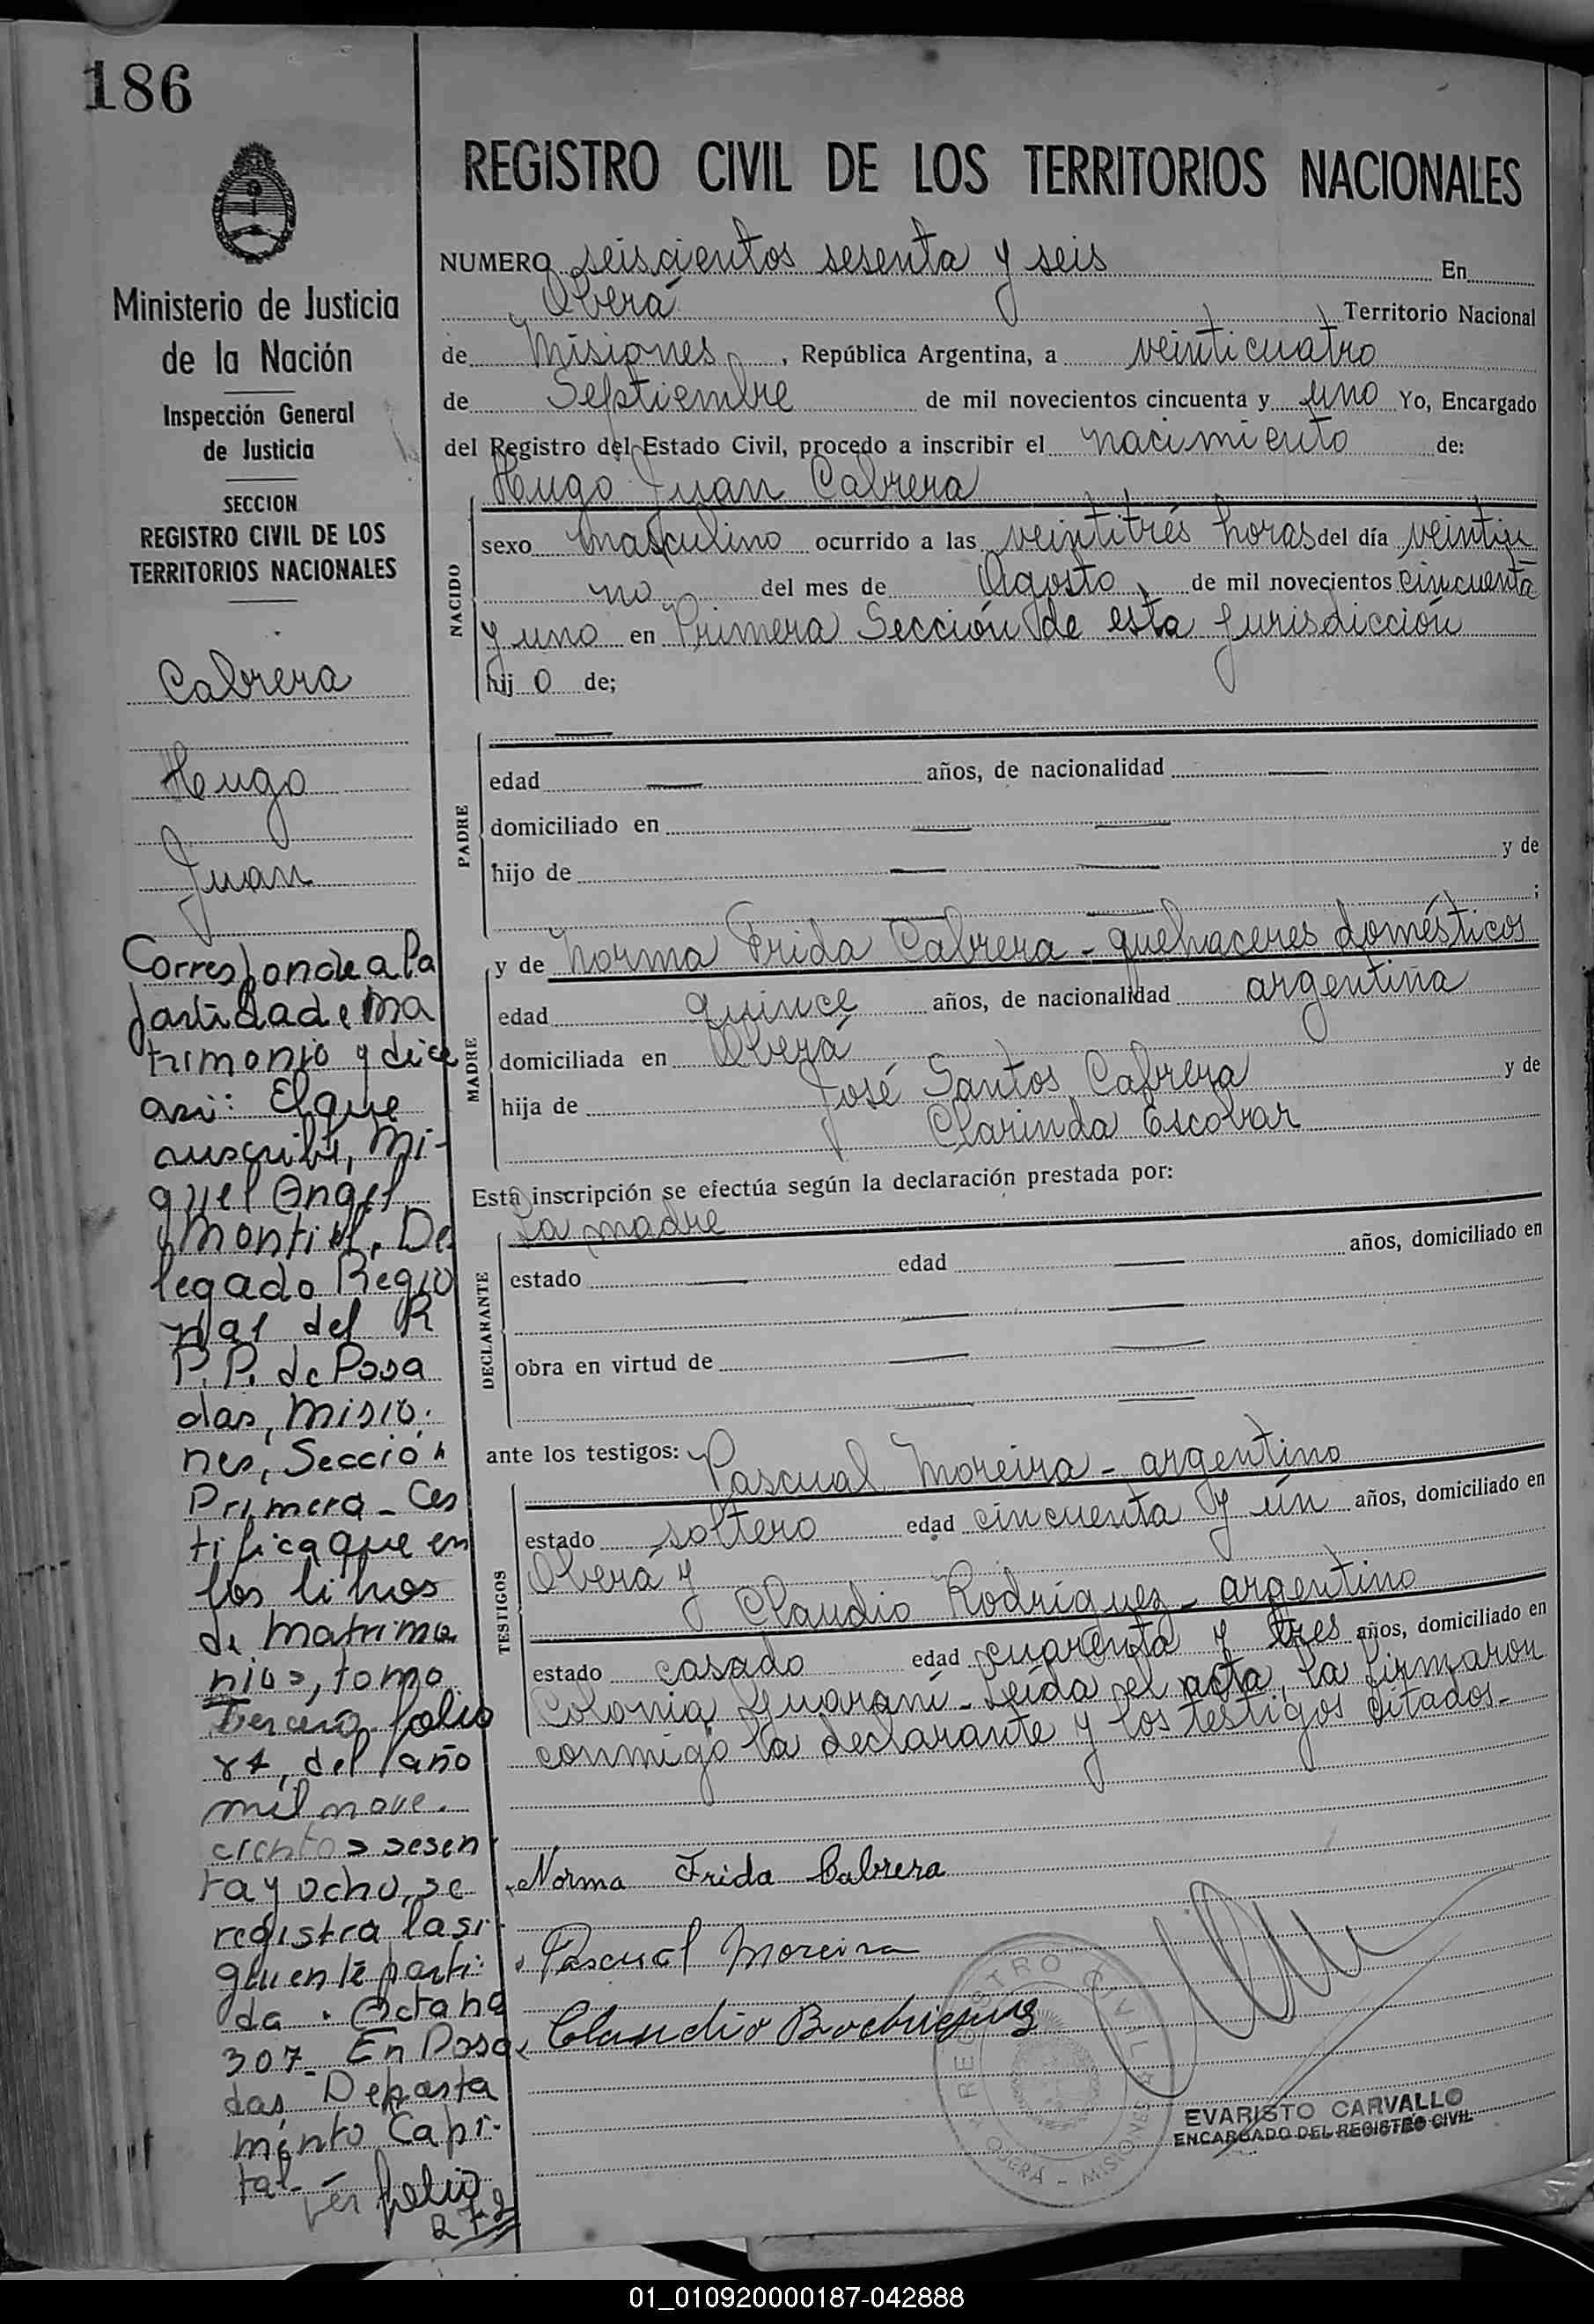 186
Ministerio de Justicia
de la Nación
Inspección General
de Justicia
SECCION
REGISTRO CIVIL DE LOS
TERRITORIOS NACIONALES
Cabrera
Hugo
Juan
Corresponde a la
partida de Ma
trimonio y dice
asi: El que
suscribe, Mi-
guel Angel
Montiel, De
legado Regio
nal del R
P. P. de Posa
das, Misio.
nes, Sección
Primera - Cer
tifica que en
los libros
de Matrimo
nios, tomo
Tercero folio
del año
mil nove.
cientos sesen
ta y ocho, se
registra la si
guiente parti
da. Acta no
307_ En Posa
das, Departa
mento Capi-
tal- ver folio
272
REGISTRO CIVIL DE LOS TERRITORIOS NACIONALES
NUMERO seiscientos sesenta y seis En
Oberá Territorio Nacional
de Misiones, República Argentina, a veinticuatro
de Septiembre de mil novecientos cincuenta y uno Yo, Encargado
del Registro del Estado Civil, procedo a inscribir el nacimiento de:
Hugo Juan Cabrera
NACIDO
sexo masculino ocurrido a las veintitrés horas del día veintiu
no del mes de Agosto de mil novecientos cincuenta
y uno en Primera Sección de esta jurisdicción
hij o de;
PADRE
edad — años, de nacionalidad —
domiciliado en — —
hijo de — — y de
— — ;
MADRE
y de Norma Frida Cabrera - quehaceres domésticos
edad quince años, de nacionalidad argentina
domiciliada en Oberá
hija de José Santos Cabrera y de
Clarinda Escobar
Esta inscripción se efectúa según la declaración prestada por:
La madre
DECLARANTE
estado — edad — años, domiciliado en
— —
obra en virtud de — —
— —
ante los testigos: Pascual Moreira - argentino
TESTIGOS
estado soltero edad cincuenta y ún años, domiciliado en
Oberá y
Claudio Rodríguez - argentino
estado casado edad cuarenta y tres años, domiciliado en
Colonia Guaraní - Leída el acta, la firmaron
conmigo la declarante y los testigos citados.-
Norma Frida Cabrera
Pascual Moreira
Claudio Rodriguez
REGISTRO CIVIL
OBERÁ - MISIONES
EVARISTO CARVALLO
ENCARGADO DEL REGISTRO CIVIL
01_010920000187-042888